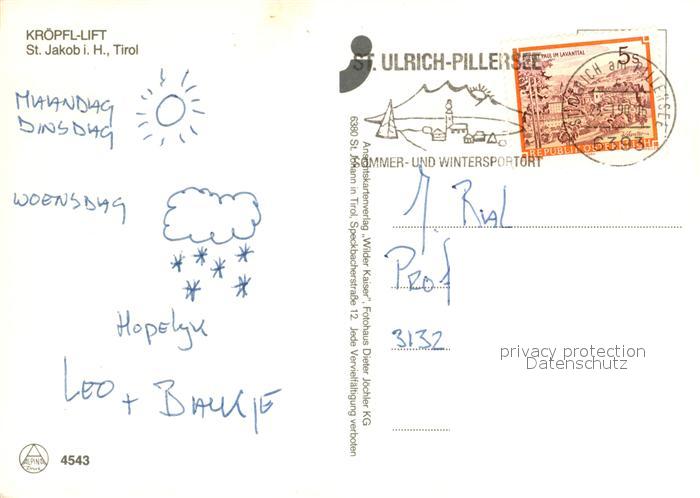 KRÖPFL-LIFT
St. Jakob i. H., Tirol
MAANDAG
DINSDAG
WOENSDAG
Hopelijk
LEO + BAUKJE
ALPINA
4543
Ansichtskartenverlag „Wilder Kaiser", Fotohaus Dieter Jöchler KG
6380 St. Johann in Tirol, Speckbacherstraße 12. Jede Vervielfältigung verboten
ST. ULRICH-PILLERSEE
SOMMER- UND WINTERSPORTORT
ST. PAUL IM LAVANTTAL
5s
REPUBLIK ÖSTERREICH
ST. ULRICH am PILLERSEE
6393
J. RiAL
PROf
3132
privacy protection
Datenschutz